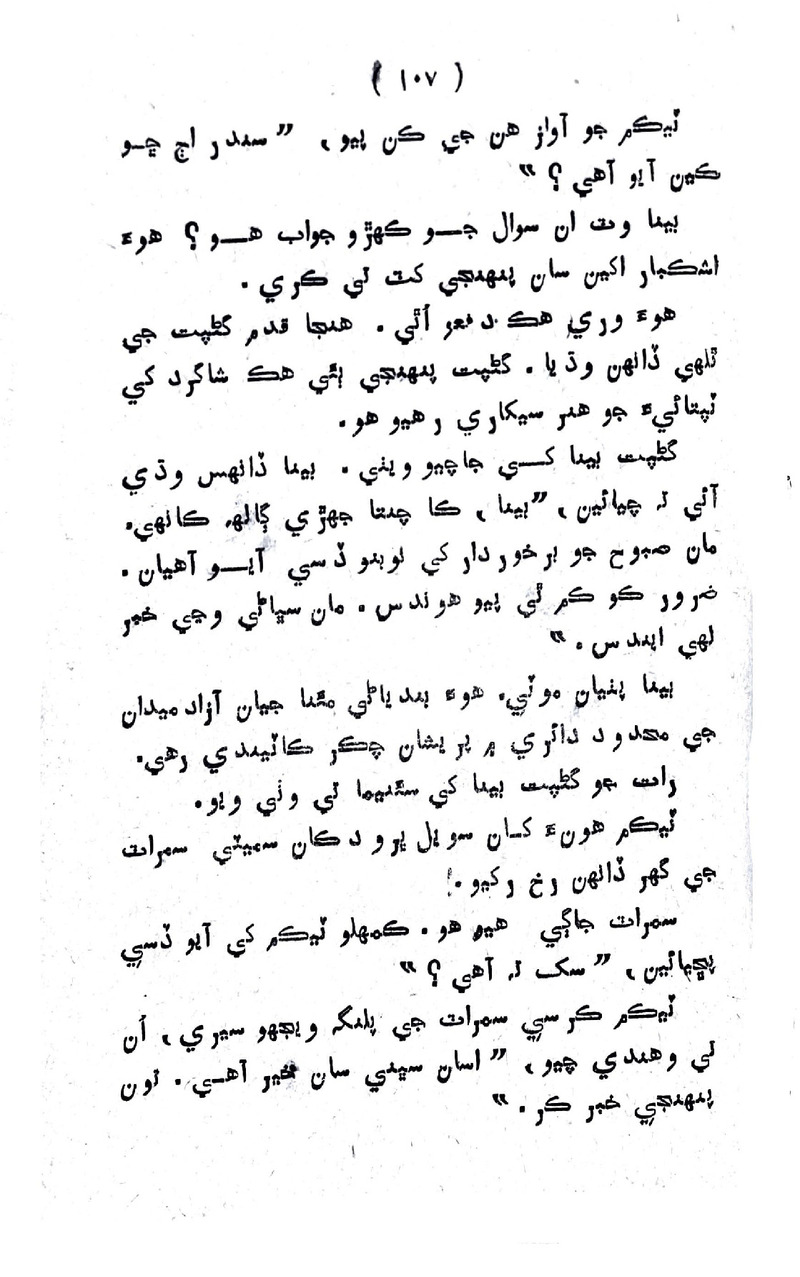 ( ١٠٧ )
ٽيڪم جو آواز هن جي ڪن پيو، ”سندر اڄ ڇـو
ڪين آيو آهي ؟“
بينا وٽ ان سوال جـو ڪهڙو جواب هـو ؟ هوءَ
اشڪبار اکين سان پنهنجي کٽ تي ڪري.
هوءَ وري هڪ دفعو اُٿي. هنجا قدم گڻپت جي
ٿلهي ڏانهن وڌيا. گڻپت پنهنجي ٻئي هڪ شاگرد کي
ٽپتائيءَ جو هنر سيکاري رهيو هو.
گڻپت بينا کـي جاچيو ويٺي. بينا ڏانهس وڌي
آئي تہ چيائين، ”بينا، ڪا چنتا جهڙي ڳالهہ ڪانهي.
مان صبوح جو برخوردار کي نوبنو ڏسي آيـو آهيان.
ضرور ڪو ڪم ٿي پيو هوندس. مان سڀاڻي وڃي خبر
لهي ايندس.“
بينا پٺيان موٽي. هوءَ بند پاڻي مٿا جيان آزاد ميدان
جي محدود دائري ۾ پريشان چڪر ڪاٽيندي رهي.
رات جو گڻپت بينا کي سئنيما تي وٺي ويو.
ٽيڪم هونءَ کـان سويل پرو دڪان سميٽي سمرات
جي گهر ڏانهن رخ رکيو.
سمرات جاڳي هيو هو. ڪمهلو ٽيڪم کي آيو ڏسي
پڇيائين، ”سک تہ آهي ؟“
ٽيڪم ڪرسي سمرات جي پلنگہ ويجهو سيري، اُن
تي وهندي چيو، ”اسان سڀني سان خير آهـي. تون
پنهنجي خبر ڪر.“